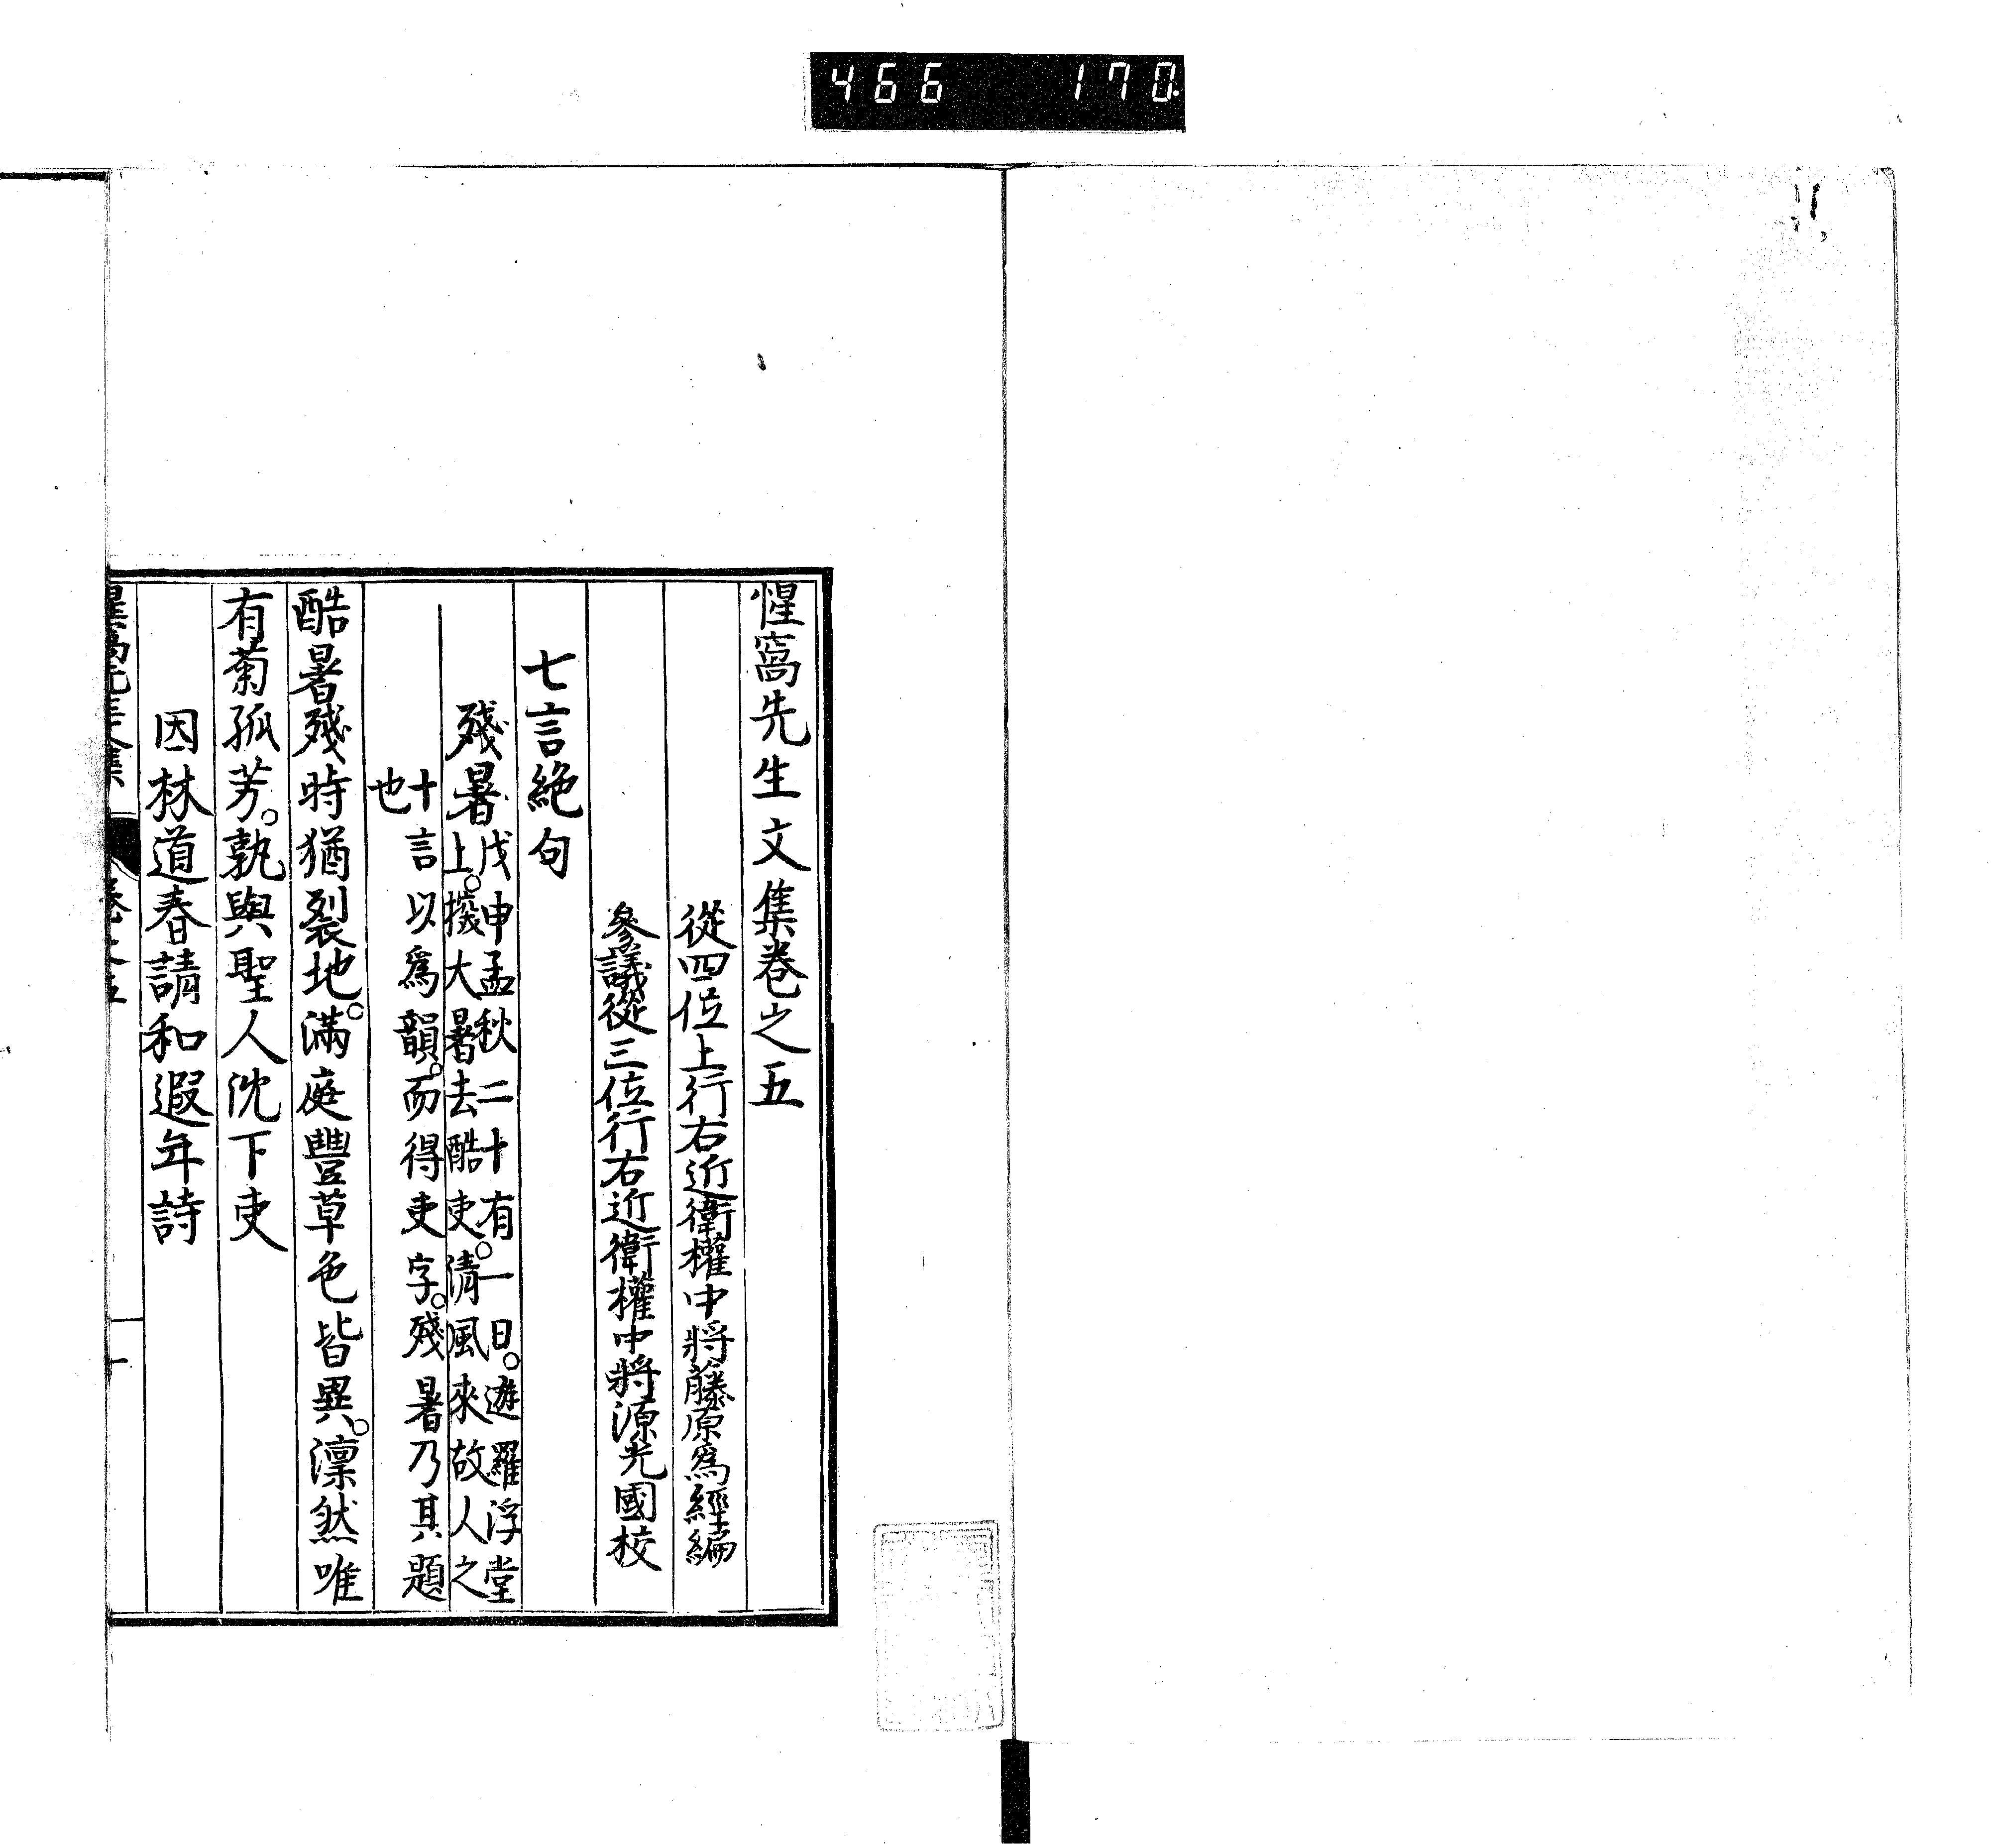 466 170
惺窩先生文集卷之五
從四位上行右近衛權中將藤原爲經編
參議從三位行右近衛權中將源光國校
七言絶句
殘暑
戊申孟秋二十有一日。遊羅浮堂
上。撥大暑去酷吏。清風來故人之
十言以爲韻。而得吏字。殘暑乃其題
也
酷暑殘時猶裂地。滿庭豐草色皆異。凜然唯
有菊孤芳。孰與聖人沈下吏
因林道春請和遐年詩